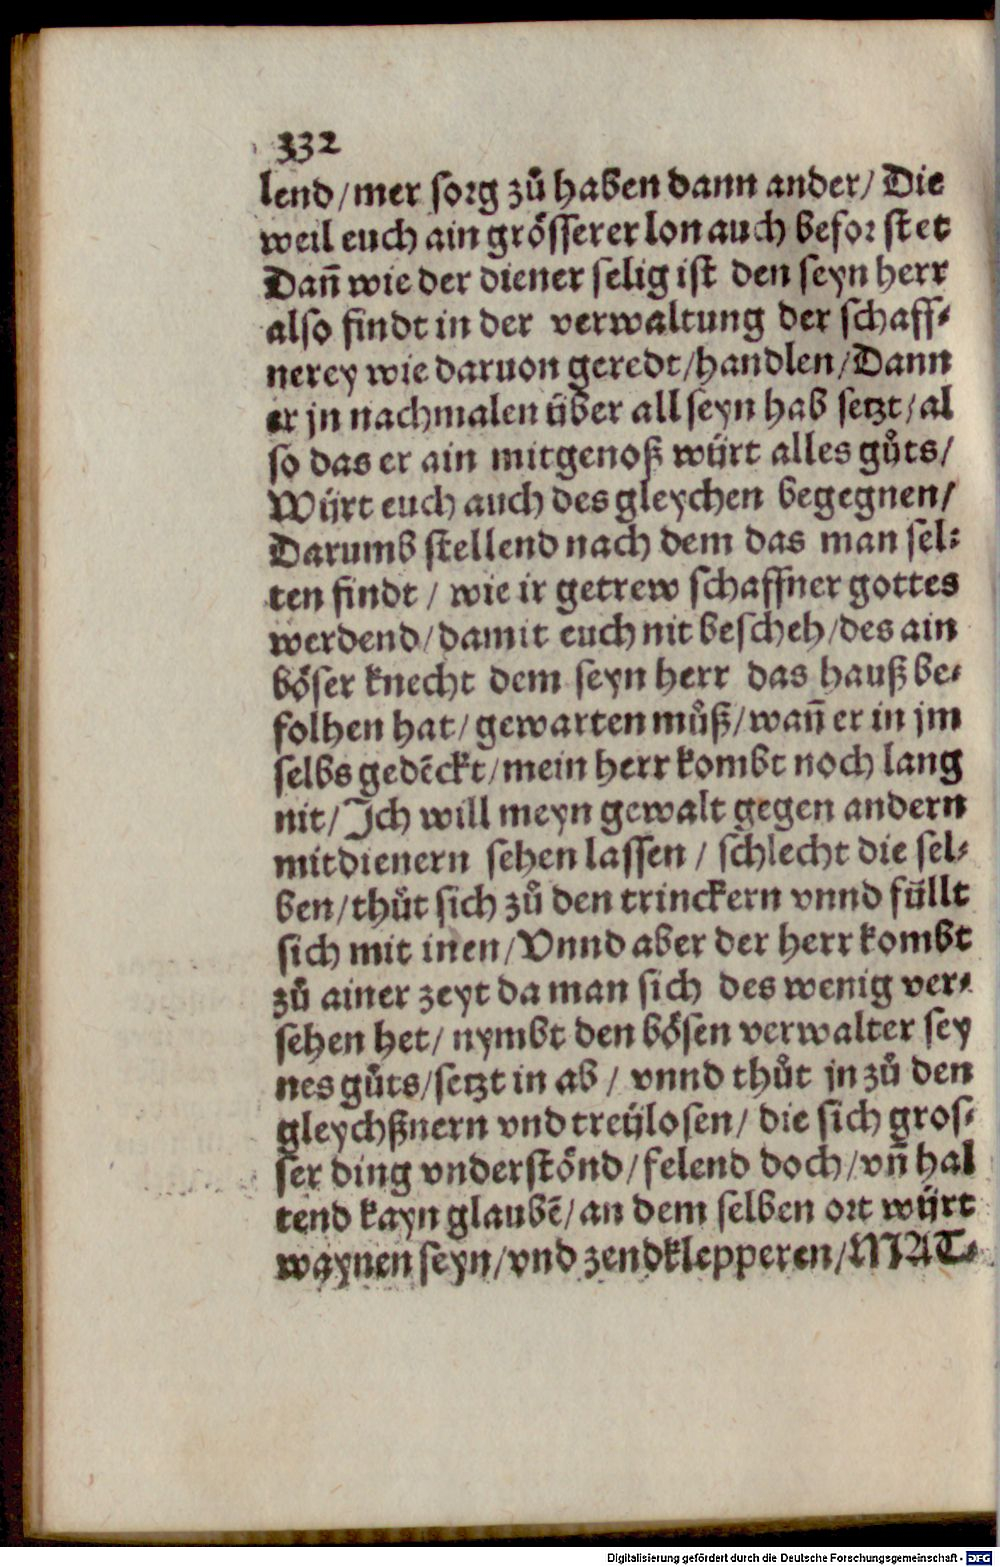 332
lend/mer sorg zů haben dann ander/ Die
weil euch ain grösserer lon auch befor stet
Dañ wie der diener selig ist den seyn herr
also findt in der verwaltung der schaff⸗
nerey wie daruon geredt/handlen/Dann
er jn nachmalen über all seyn hab setzt/al
so das er ain mitgenoß würt alles gůts/
Würt euch auch des gleychen begegnen/
Darumb stellend nach dem das man sel⸗
ten findt / wie ir getrew schaffner gottes
werdend/damit euch nit bescheh/des ain
böser knecht dem seyn herr das hauß be⸗
folhen hat/ gewarten můß/wañ er in jm
selbs gedēckt/mein herr kombt noch lang
nit/Ich will meyn gewalt gegen andern
mitdienern sehen lassen / schlecht die sel⸗
ben/thůt sich zů den trinckern vnnd füllt
sich mit inen/Vnnd aber der herr kombt
zů ainer zeyt da man sich des wenig ver⸗
sehen het/ nymbt den bösen verwalter sey
nes gůts/setzt in ab / vnnd thůt jn zů den
gleychßnern vnd treülosen/ die sich gros⸗
ser ding vnderstönd/felend doch/vñ hal
tend kayn glaubē/an dem selben ort würt
waynen seyn/vnd zendklepperen/MAT⸗
Digitalisierung gefördert durch die Deutsche Forschungsgemeinschaft - DFG